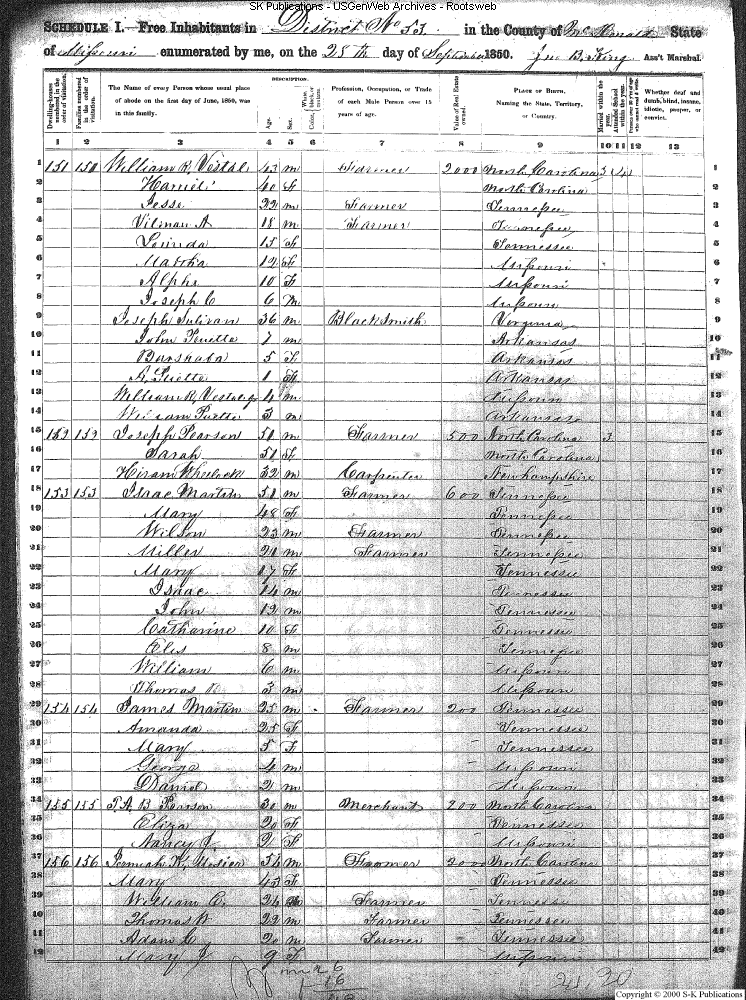 SK Publications - USGenWeb Archives - Rootsweb
SCHEDULE I.—Free Inhabitants in District No 53 in the County of McDonald State
of Missouri enumerated by me, on the 28th day of September 1850. Jno B. King Ass't Marshal.
Dwelling-houses numbered in the order of visitation.
Families numbered in the order of visitation.
The Name of every Person whose usual place of abode on the first day of June, 1850, was in this family.
DESCRIPTION.
Age.
Sex.
Color,
Profession, Occupation, or Trade of each Male Person over 15 years of age.
Value of Real Estate owned.
PLACE OF BIRTH. Naming the State, Territory, or Country.
Married within the year.
Attended School within the year.
Whether deaf and dumb, blind, insane, idiotic, pauper, or convict.
1 2 3 4 5 6 7 8 9 10 11 12 13
1 151 150 William R. Vestal 43 m Farmer 2000 North Carolina 1
2 40 F North Carolina 2
3 Jesse 22 m Farmer Tennessee 3
4 A 18 m Farmer Tennessee 4
5 15 F Tennessee 5
6 Martha 12 F Missouri 6
7 10 F Missouri 7
8 Joseph C 6 m Missouri 8
9 Joseph Sulivan 36 m Blacksmith Virginia 9
10 John 7 m Arkansas 10
11 5 F Arkansas 11
12 1 F Arkansas 12
13 William R. Vestal 4 m Missouri 13
14 William 3 m Arkansas 14
15 152 152 Joseph Pearson 51 m Farmer 500 North Carolina 3 15
16 Sarah 51 F North Carolina 16
17 Hiram Wheelock 32 m Carpenter Newhampshire 17
18 153 153 Isaac Martin 51 m Farmer 600 Tennessee 18
19 Mary 48 F Tennessee 19
20 Wilson 23 m Farmer Tennessee 20
21 Miller 21 m Farmer Tennessee 21
22 Mary 17 F Tennessee 22
23 Isaac 14 m Tennessee 23
24 John 12 m Tennessee 24
25 Catharine 10 F Tennessee 25
26 8 m Tennessee 26
27 William 6 m Missouri 27
28 Thomas 3 m Missouri 28
29 154 154 James Martin 25 m Farmer 200 Tennessee 29
30 Amanda 25 F Tennessee 30
31 Mary 5 F Tennessee 31
32 George 4 m Missouri 32
33 Daniel 2 m Missouri 33
34 155 155 B 30 m Merchant 200 North Carolina 34
35 Eliza 20 F Tennessee 35
36 Nancy J. 2 F Missouri 36
37 156 156 54 m Farmer 2000 North Carolina 37
38 Mary 43 F Tennessee 38
39 William C. 24 m Farmer Tennessee 39
40 Thomas W 22 m Farmer Tennessee 40
41 Adam C 20 m Farmer Tennessee 41
42 Mary J 9 F Missouri 42
Copyright © 2000 S-K Publications